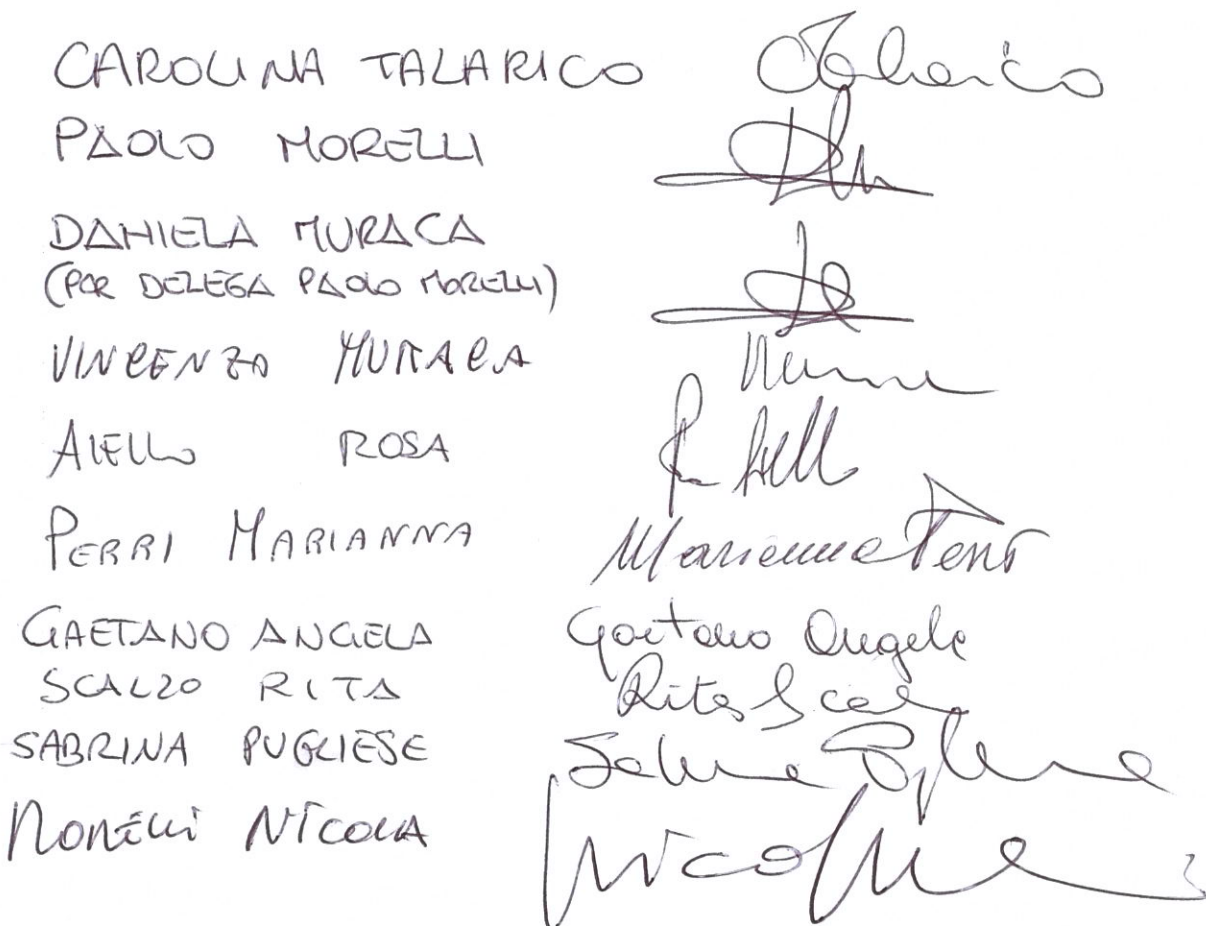 CAROLINA TALARICO Talarico
PAOLO MORELLI
DANIELA MURACA
(PER DELEGA PAOLO MORELLI)
VINCENZO MURACA
AIELLO ROSA
PERRI MARIANNA Marianna Perri
GAETANO ANGELA Gaetano Angela
SCALZO RITA Rita Scalzo
SABRINA PUGLIESE Sabrina Pugliese
MORELLI NICOLA